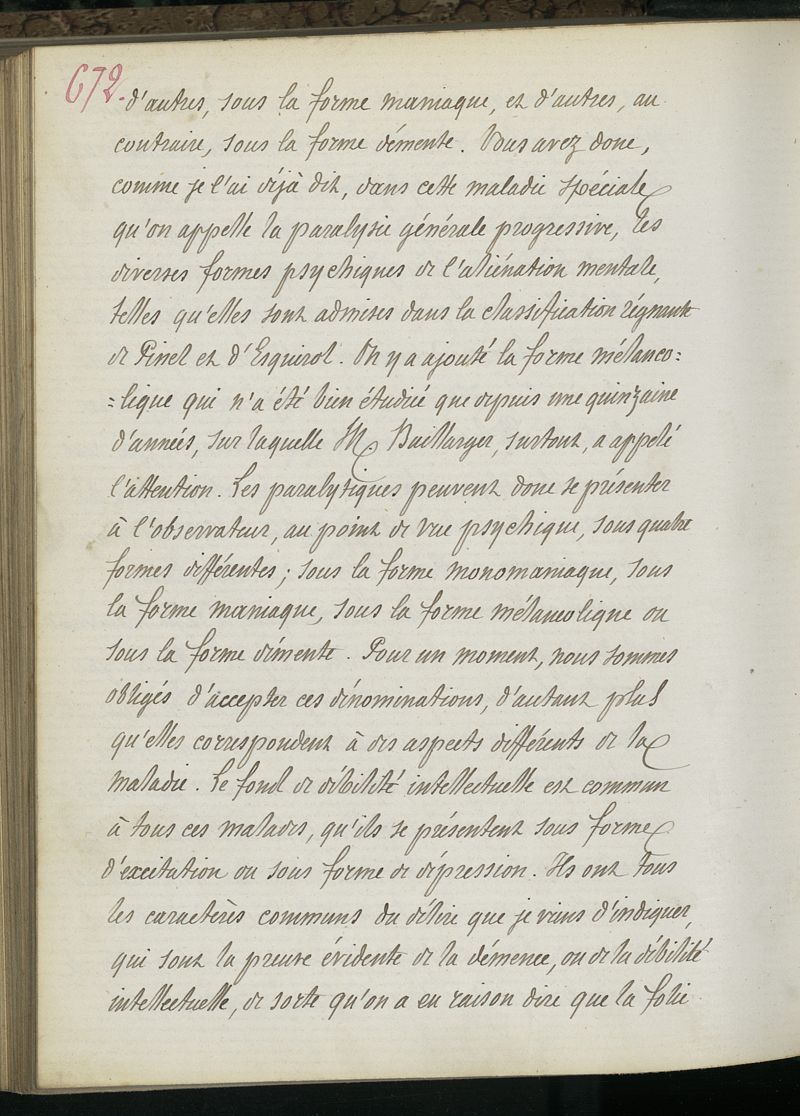 672.
d'autres, sous la forme maniaque, et d'autres, au
contraire, sous la forme démente. Vous avez donc,
comme je l'ai déjà dit, dans cette maladie spéciale
qu'on appelle la paralysie générale progressive, les
diverses formes psychiques de l'aliénation mentale,
telles qu'elles sont admises dans la classification régnante
de Pinel et d'Esquirol. On y a ajouté la forme mélanco=
=lique qui n'a été bien étudiée que depuis une quinzaine
d'années, sur laquelle M Baillarger, surtout, a appelé
l'attention. Les paralytiques peuvent donc se présenter
à l'observateur, au point de vue psychique, sous quatre
formes différentes; sous la forme monomaniaque, sous
la forme maniaque, sous la forme mélancolique ou
sous la forme démente. Pour un moment, nous sommes
obligés d'accepter ces dénominations, d'autant plus
qu'elles correspondent à des aspects différents de la
maladie. Le fond de débilité intellectuelle est commun
à tous ces malades, qu'ils se présentent sous forme
d'excitation ou sous forme de dépression. Ils ont tous
les caractères communs du délire que je viens d'indiquer,
qui sont la preuve évidente de la démence, ou de la débilité
intellectuelle, de sorte qu'on a eu raison dire que la folie